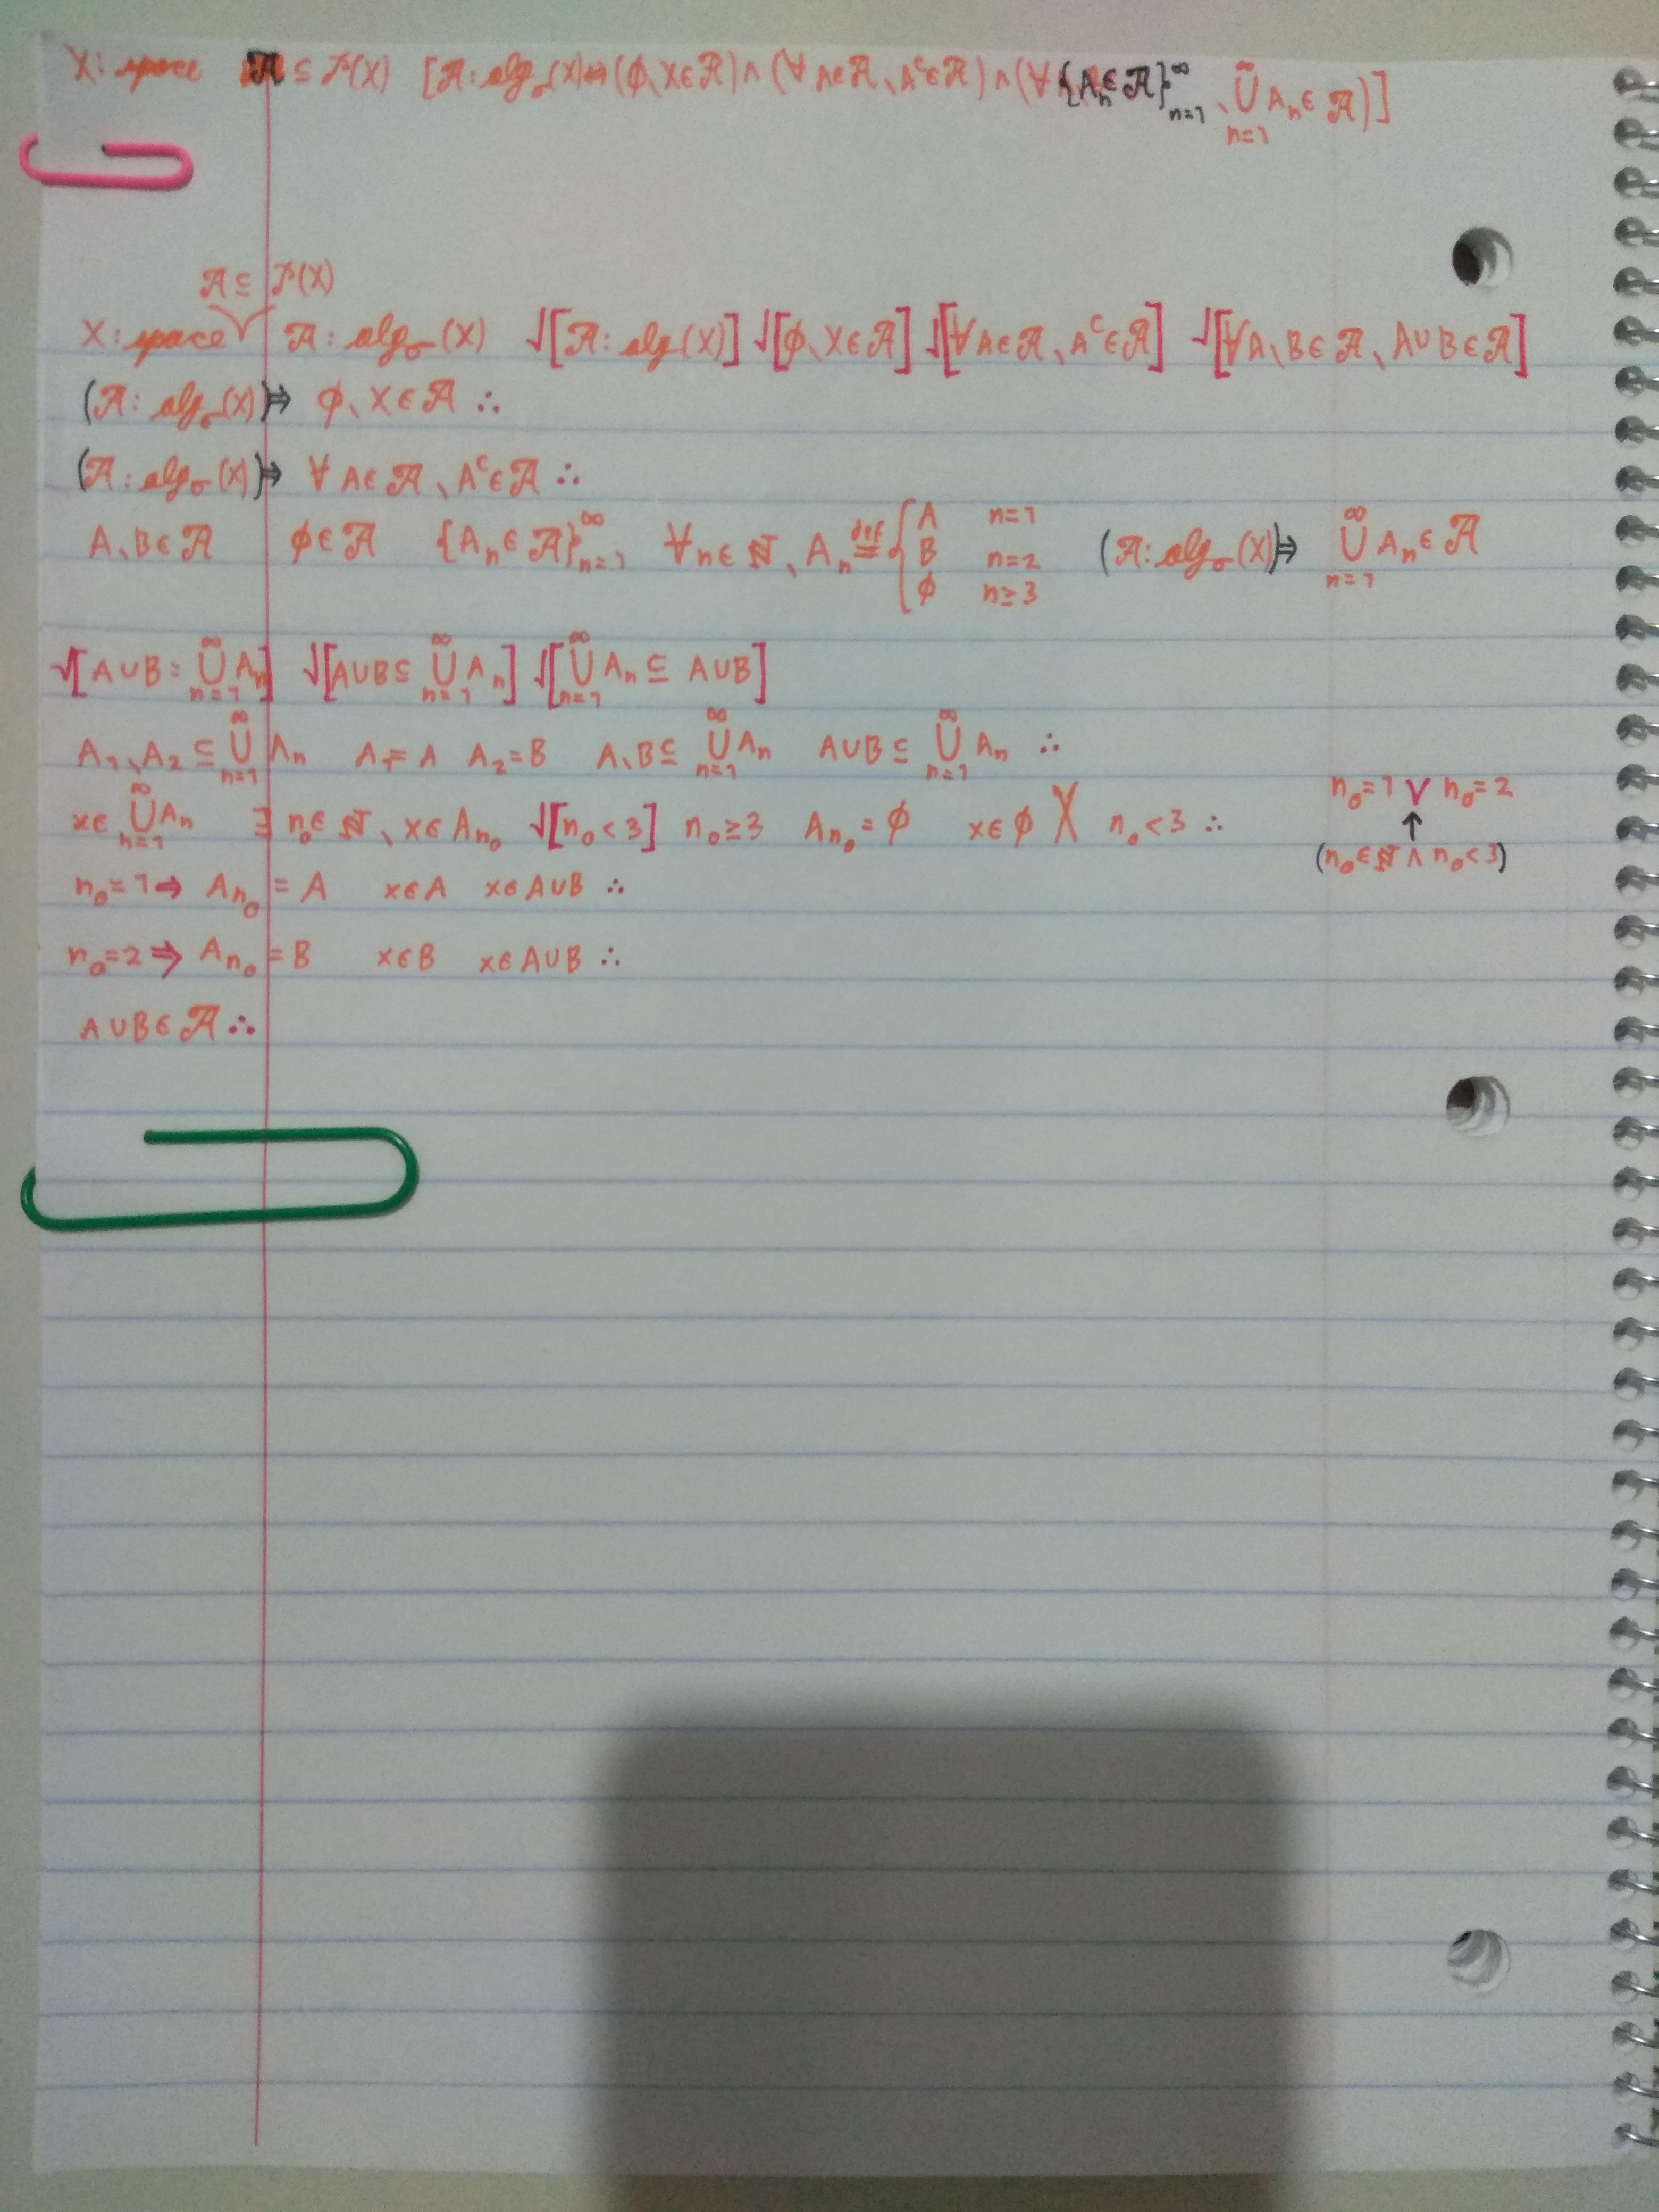 X: space 𝒜 ⊆ 𝒫(X) [𝒜: alg_σ(X) ⇔ (∅, X ∈ 𝒜) ∧ (∀ A ∈ 𝒜, A^c ∈ 𝒜) ∧ (∀ {A_n ∈ 𝒜}_{n=1}^∞, ⋃_{n=1}^∞ A_n ∈ 𝒜)]
𝒜 ⊆ 𝒫(X)
X: space 𝒜: alg_σ(X) √[𝒜: alg(X)] √[∅, X ∈ 𝒜] √[∀ A ∈ 𝒜, A^c ∈ 𝒜] √[∀ A, B ∈ 𝒜, A ∪ B ∈ 𝒜]
(𝒜: alg_σ(X)) ⇒ ∅, X ∈ 𝒜 ∴
(𝒜: alg_σ(X)) ⇒ ∀ A ∈ 𝒜, A^c ∈ 𝒜 ∴
A, B ∈ 𝒜 ∅ ∈ 𝒜 {A_n ∈ 𝒜}_{n=1}^∞ ∀ n ∈ ℕ, A_n ≝ { A n=1 B n=2 ∅ n≥3 (𝒜: alg_σ(X)) ⇒ ⋃_{n=1}^∞ A_n ∈ 𝒜
√[A ∪ B = ⋃_{n=1}^∞ A_n] √[A ∪ B ⊆ ⋃_{n=1}^∞ A_n] √[⋃_{n=1}^∞ A_n ⊆ A ∪ B]
A_1, A_2 ⊆ ⋃_{n=1}^∞ A_n A_1 = A A_2 = B A, B ⊆ ⋃_{n=1}^∞ A_n A ∪ B ⊆ ⋃_{n=1}^∞ A_n ∴
x ∈ ⋃_{n=1}^∞ A_n ∃ n_0 ∈ ℕ, x ∈ A_{n_0} √[n_0 < 3] n_0 ≥ 3 A_{n_0} = ∅ x ∈ ∅ X n_0 < 3 ∴
n_0 = 1 ∨ n_0 = 2
↑
(n_0 ∈ ℕ ∧ n_0 < 3)
n_0 = 1 ⇒ A_{n_0} = A x ∈ A x ∈ A ∪ B ∴
n_0 = 2 ⇒ A_{n_0} = B x ∈ B x ∈ A ∪ B ∴
A ∪ B ∈ 𝒜 ∴